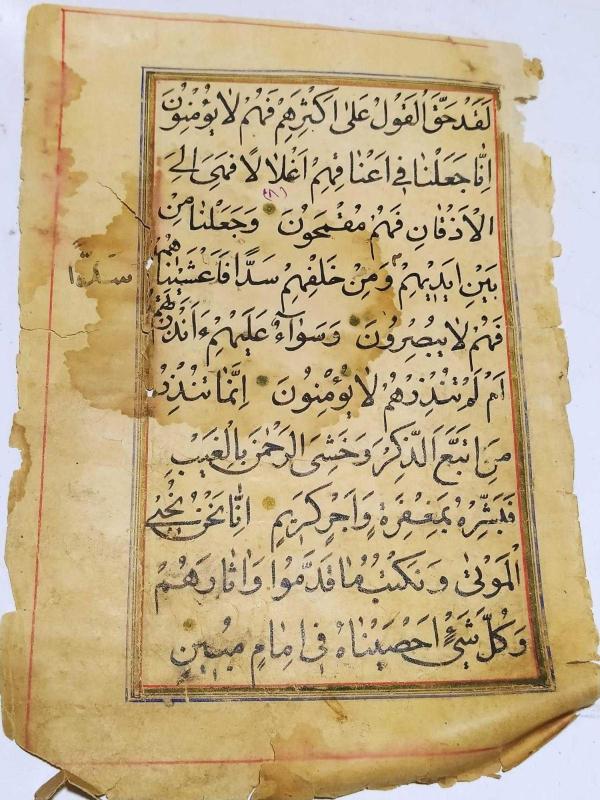 لَقَدْ حَقَّ الْقَوْلُ عَلىٰ اَكْثَرِهِمْ فَهُمْ لا يُؤْمِنُونَ
اِنّا جَعَلْنا فى اَعْناقِهِمْ اَغْلالًا فَهِىَ اِلَى
الْاَذْقانِ فَهُمْ مُقْمَحُونَ وَجَعَلْنا مِنْ
بَيْنِ اَيْديهِمْ وَمِنْ خَلْفِهِمْ سَدًّا فَاَغْشَيْناهُمْ
سَدًّا
فَهُمْ لا يُبْصِرُونَ وَسَوآءٌ عَلَيْهِمْ ءَاَنْذَرْتَهُمْ
اَمْ لَمْ تُنْذِرْهُمْ لا يُؤْمِنُونَ اِنَّما تُنْذِرُ
مَنِ اتَّبَعَ الذِّكْرَ وَخَشِىَ الرَّحْمٰنَ بِالْغَيْبِ
فَبَشِّرْهُ بِمَغْفِرَةٍ وَاَجْرٍ كَرِيمٍ اِنّا نَحْنُ نُحْيِى
الْمَوْتىٰ وَنَكْتُبُ ما قَدَّمُوا وَاٰثارَهُمْ
وَكُلَّ شَىْءٍ اَحْصَيْناهُ فى اِمامٍ مُبينٍ